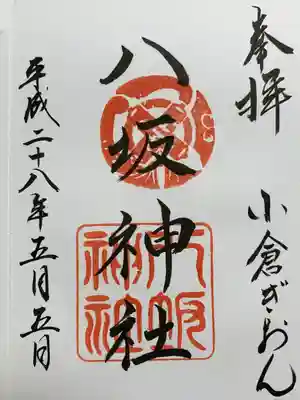 奉拝
小倉ぎおん
八坂神社
八阪神社
平成二十八年五月五日